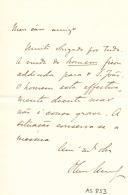 Meu caro amigo
Muito obrigado por tudo.
A vinda do homem ficou
addiada para o S. João.
O homem está effectiva-
mente doente mas
não é coisa grave. A
situação conserva-se a
mesma
AS 853